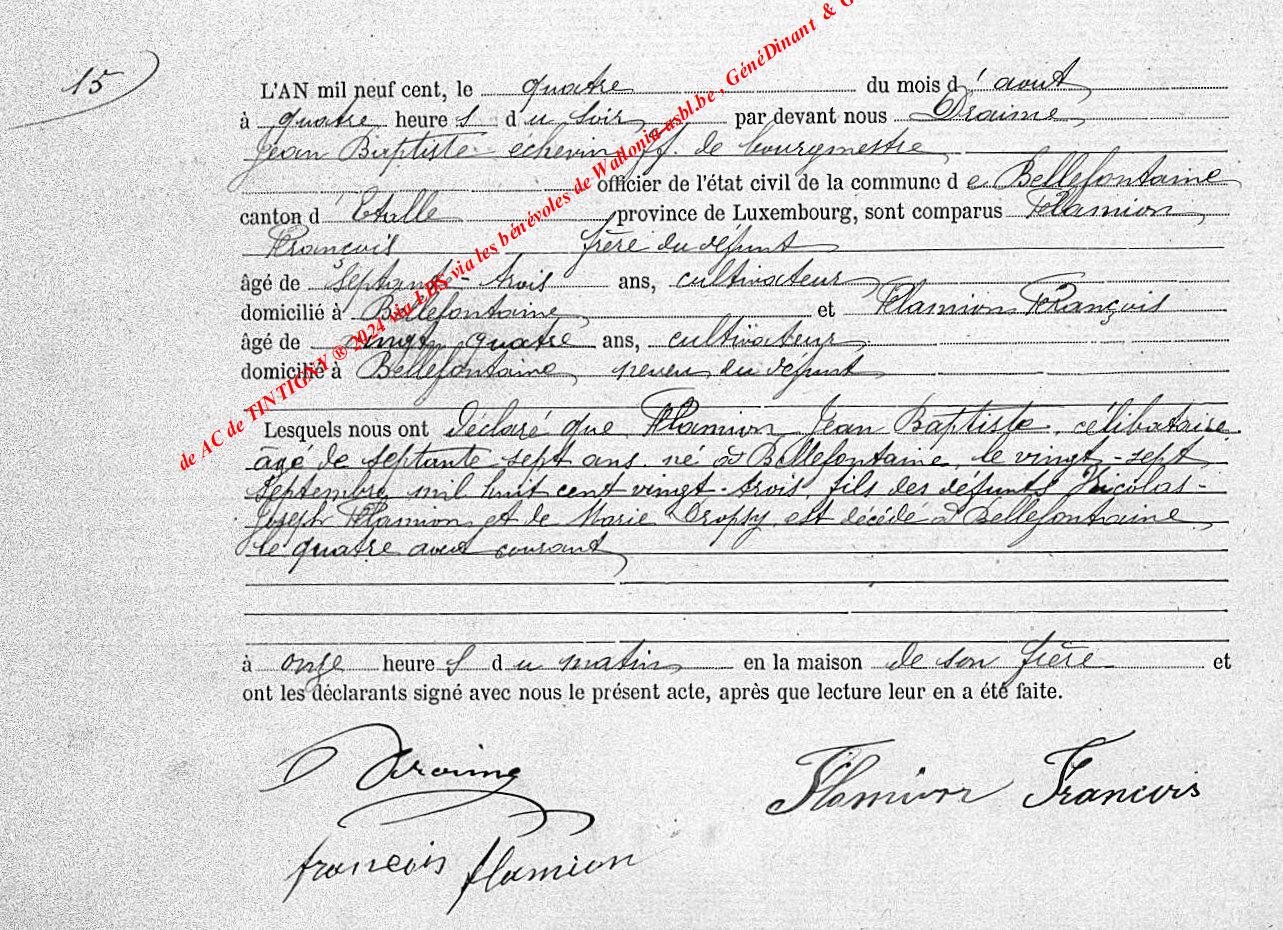 15
L'AN mil neuf cent, le quatre du mois d'aout
à quatre heures du soir par devant nous Draime
Jean Baptiste échevin ff. de bourgmestre
officier de l'état civil de la commune de Bellefontaine
canton d'Etalle province de Luxembourg, sont comparus Flamion
François frère du défunt
âgé de septante-trois ans, cultivateur
domicilié à Bellefontaine et Flamion François
âgé de vingt quatre ans, cultivateur
domicilié à Bellefontaine neveu du défunt
Lesquels nous ont déclaré que Flamion Jean Baptiste, célibataire
âgé de septante sept ans né à Bellefontaine, le vingt-sept
Septembre mil huit cent vingt-trois, fils des défunts Nicolas-
Joseph Flamion et de Marie Cropsy est décédé à Bellefontaine
le quatre aout courant
à onze heures du matin en la maison de son frère et
ont les déclarants signé avec nous le présent acte, après que lecture leur en a été faite.
Flamion François
françois flamion
de AC de TINTIGNY ® 2024 via FHS via les bénévoles de Wallonia-asbl.be , GénéDinant & G